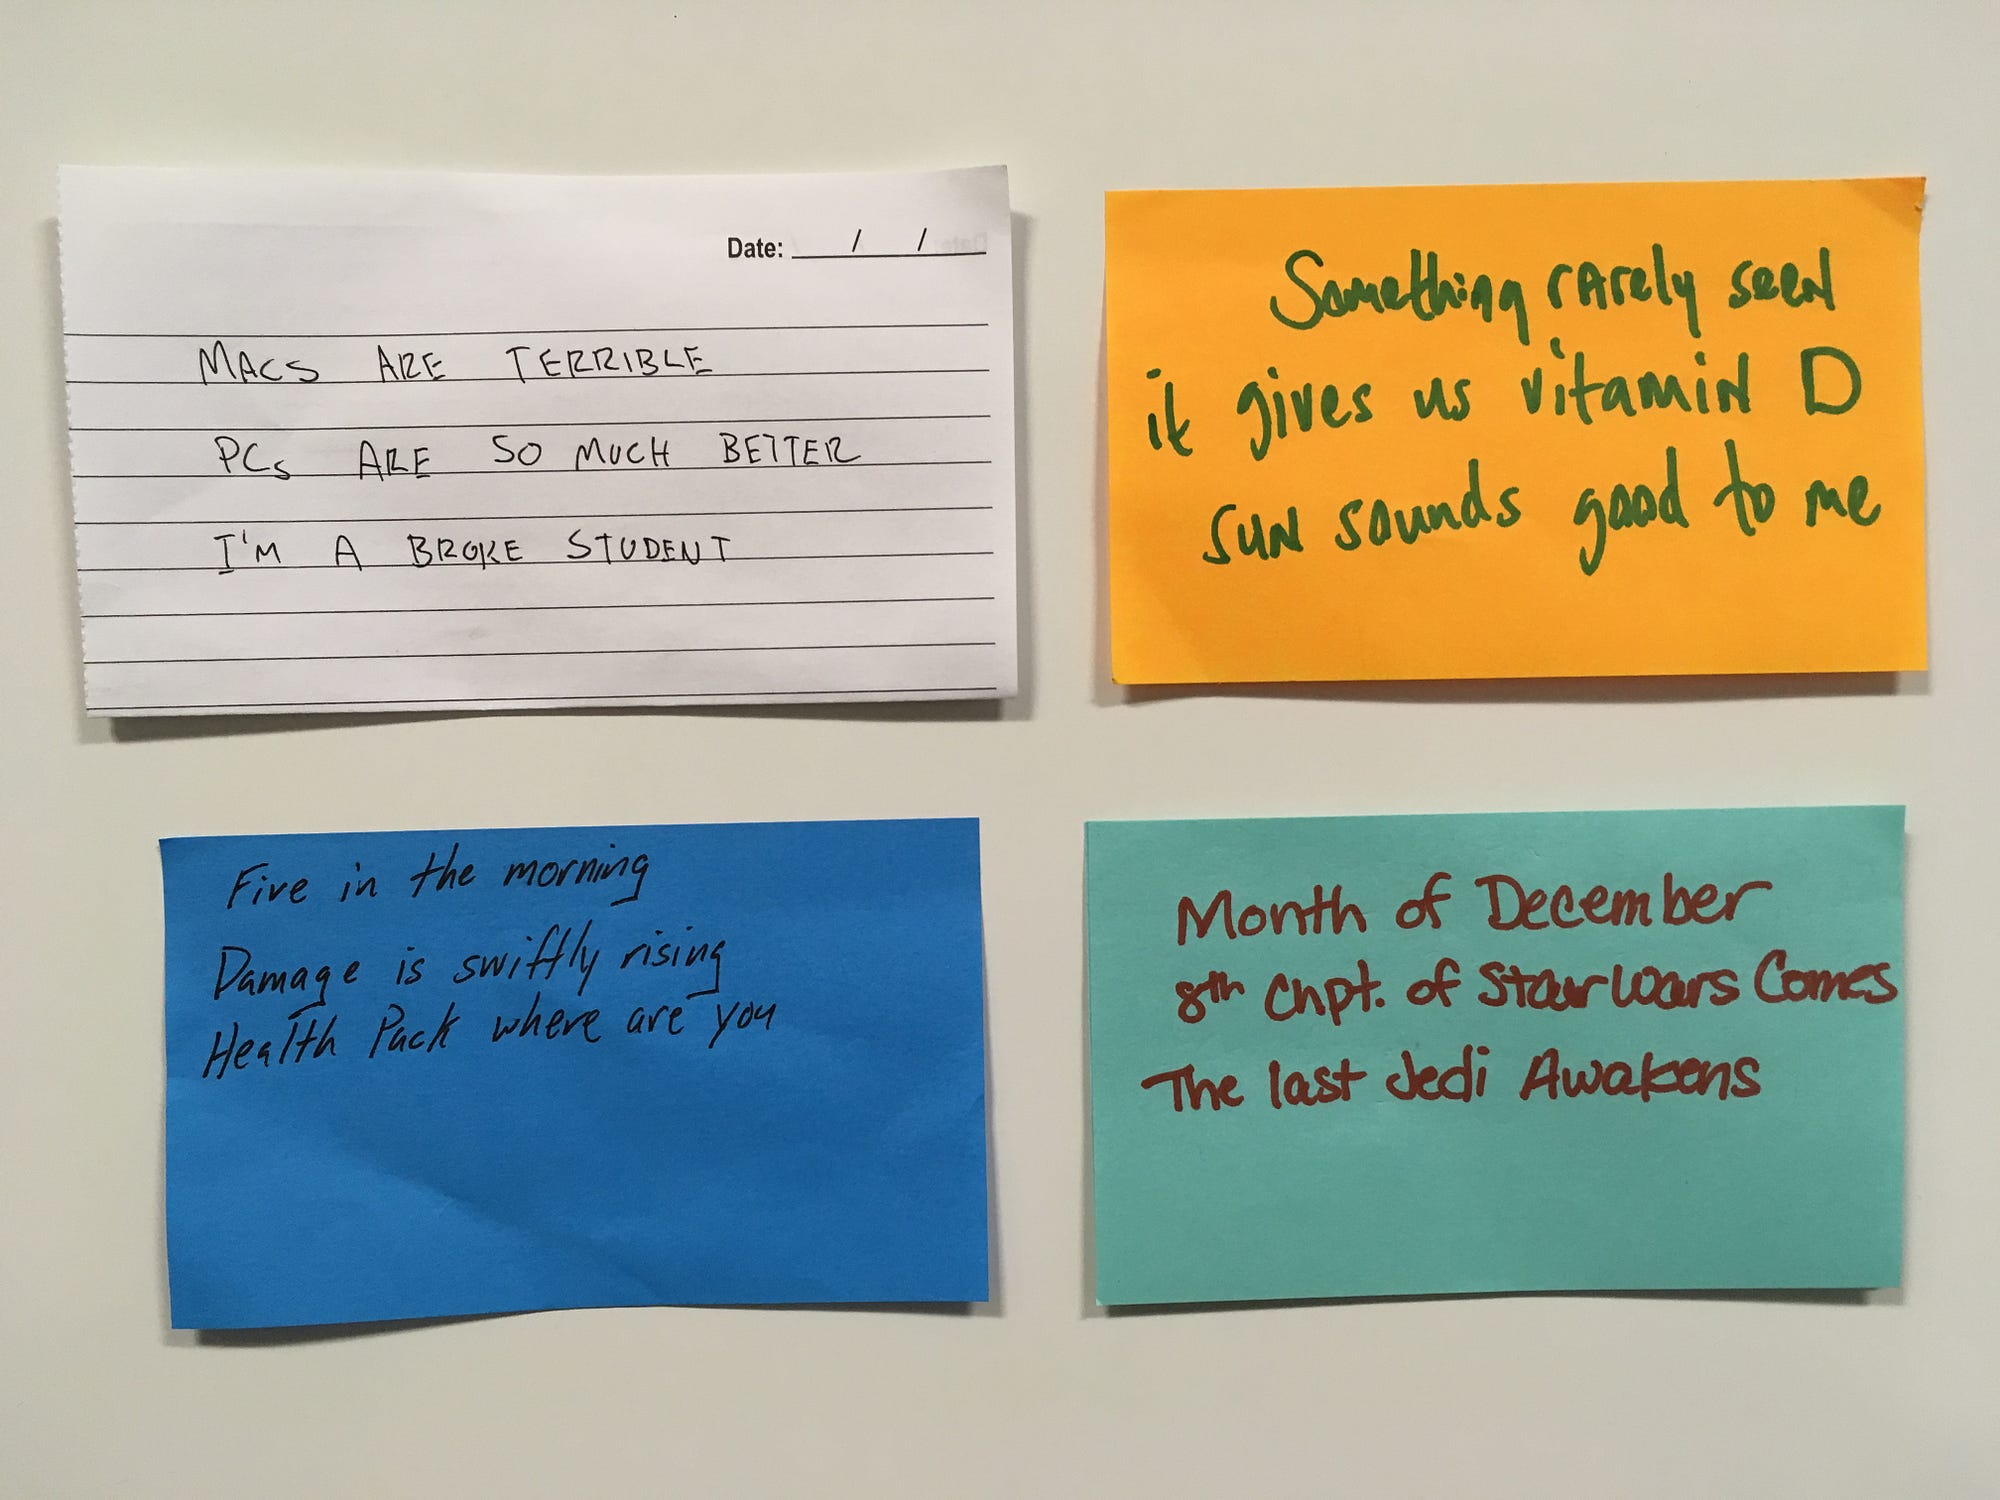 Date: / /
MACS ARE TERRIBLE
PCs ARE SO MUCH BETTER
I'M A BROKE STUDENT
Something rarely seen
it gives us vitamin D
sun sounds good to me
Five in the morning
Damage is swiftly rising
Health Pack where are you
Month of December
8th Chpt. of Star Wars Comes
The last Jedi Awakens